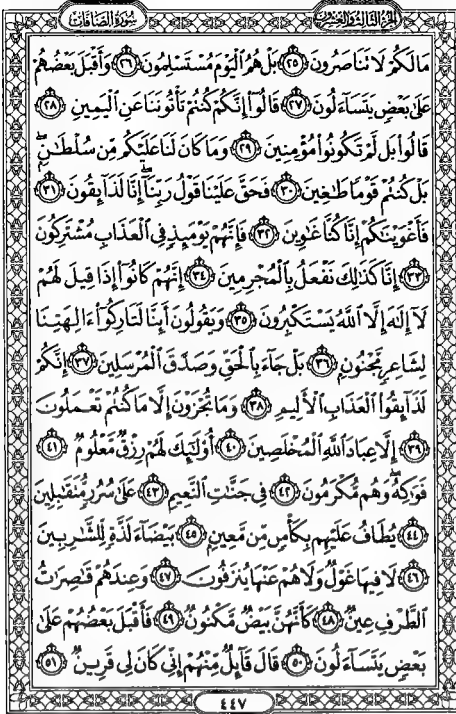 الجزء الثالث والعشرون
سورة الصافات
مَالَكُمْ لَا تَنَاصَرُونَ ٢٥ بَلْ هُمُ الْيَوْمَ مُسْتَسْلِمُونَ ٢٦ وَأَقْبَلَ بَعْضُهُمْ
عَلَىٰ بَعْضٍ يَتَسَآءَلُونَ ٢٧ قَالُوٓا۟ إِنَّكُمْ كُنتُمْ تَأْتُونَنَا عَنِ الْيَمِينِ ٢٨
قَالُوا۟ بَل لَّمْ تَكُونُوا۟ مُؤْمِنِينَ ٢٩ وَمَا كَانَ لَنَا عَلَيْكُم مِّن سُلْطَٰنٍۭ ۖ
بَلْ كُنتُمْ قَوْمًا طَٰغِينَ ٣٠ فَحَقَّ عَلَيْنَا قَوْلُ رَبِّنَآ ۖ إِنَّا لَذَآئِقُونَ ٣١
فَأَغْوَيْنَٰكُمْ إِنَّا كُنَّا غَٰوِينَ ٣٢ فَإِنَّهُمْ يَوْمَئِذٍ فِى الْعَذَابِ مُشْتَرِكُونَ
٣٣ إِنَّا كَذَٰلِكَ نَفْعَلُ بِالْمُجْرِمِينَ ٣٤ إِنَّهُمْ كَانُوٓا۟ إِذَا قِيلَ لَهُمْ
لَآ إِلَٰهَ إِلَّا اللَّهُ يَسْتَكْبِرُونَ ٣٥ وَيَقُولُونَ أَئِنَّا لَتَارِكُوٓا۟ ءَالِهَتِنَا
لِشَاعِرٍ مَّجْنُونٍۭ ٣٦ بَلْ جَآءَ بِالْحَقِّ وَصَدَّقَ الْمُرْسَلِينَ ٣٧ إِنَّكُمْ
لَذَآئِقُوا۟ الْعَذَابِ الْأَلِيمِ ٣٨ وَمَا تُجْزَوْنَ إِلَّا مَا كُنتُمْ تَعْمَلُونَ
٣٩ إِلَّا عِبَادَ اللَّهِ الْمُخْلَصِينَ ٤٠ أُو۟لَٰٓئِكَ لَهُمْ رِزْقٌ مَّعْلُومٌ ٤١
فَوَٰكِهُ ۖ وَهُم مُّكْرَمُونَ ٤٢ فِى جَنَّٰتِ النَّعِيمِ ٤٣ عَلَىٰ سُرُرٍ مُّتَقَٰبِلِينَ
٤٤ يُطَافُ عَلَيْهِم بِكَأْسٍ مِّن مَّعِينٍۭ ٤٥ بَيْضَآءَ لَذَّةٍ لِّلشَّٰرِبِينَ
٤٦ لَا فِيهَا غَوْلٌ وَلَا هُمْ عَنْهَا يُنزَفُونَ ٤٧ وَعِندَهُمْ قَٰصِرَٰتُ
الطَّرْفِ عِينٌ ٤٨ كَأَنَّهُنَّ بَيْضٌ مَّكْنُونٌ ٤٩ فَأَقْبَلَ بَعْضُهُمْ عَلَىٰ
بَعْضٍ يَتَسَآءَلُونَ ٥٠ قَالَ قَآئِلٌ مِّنْهُمْ إِنِّى كَانَ لِى قَرِينٌ ٥١
٤٤٧